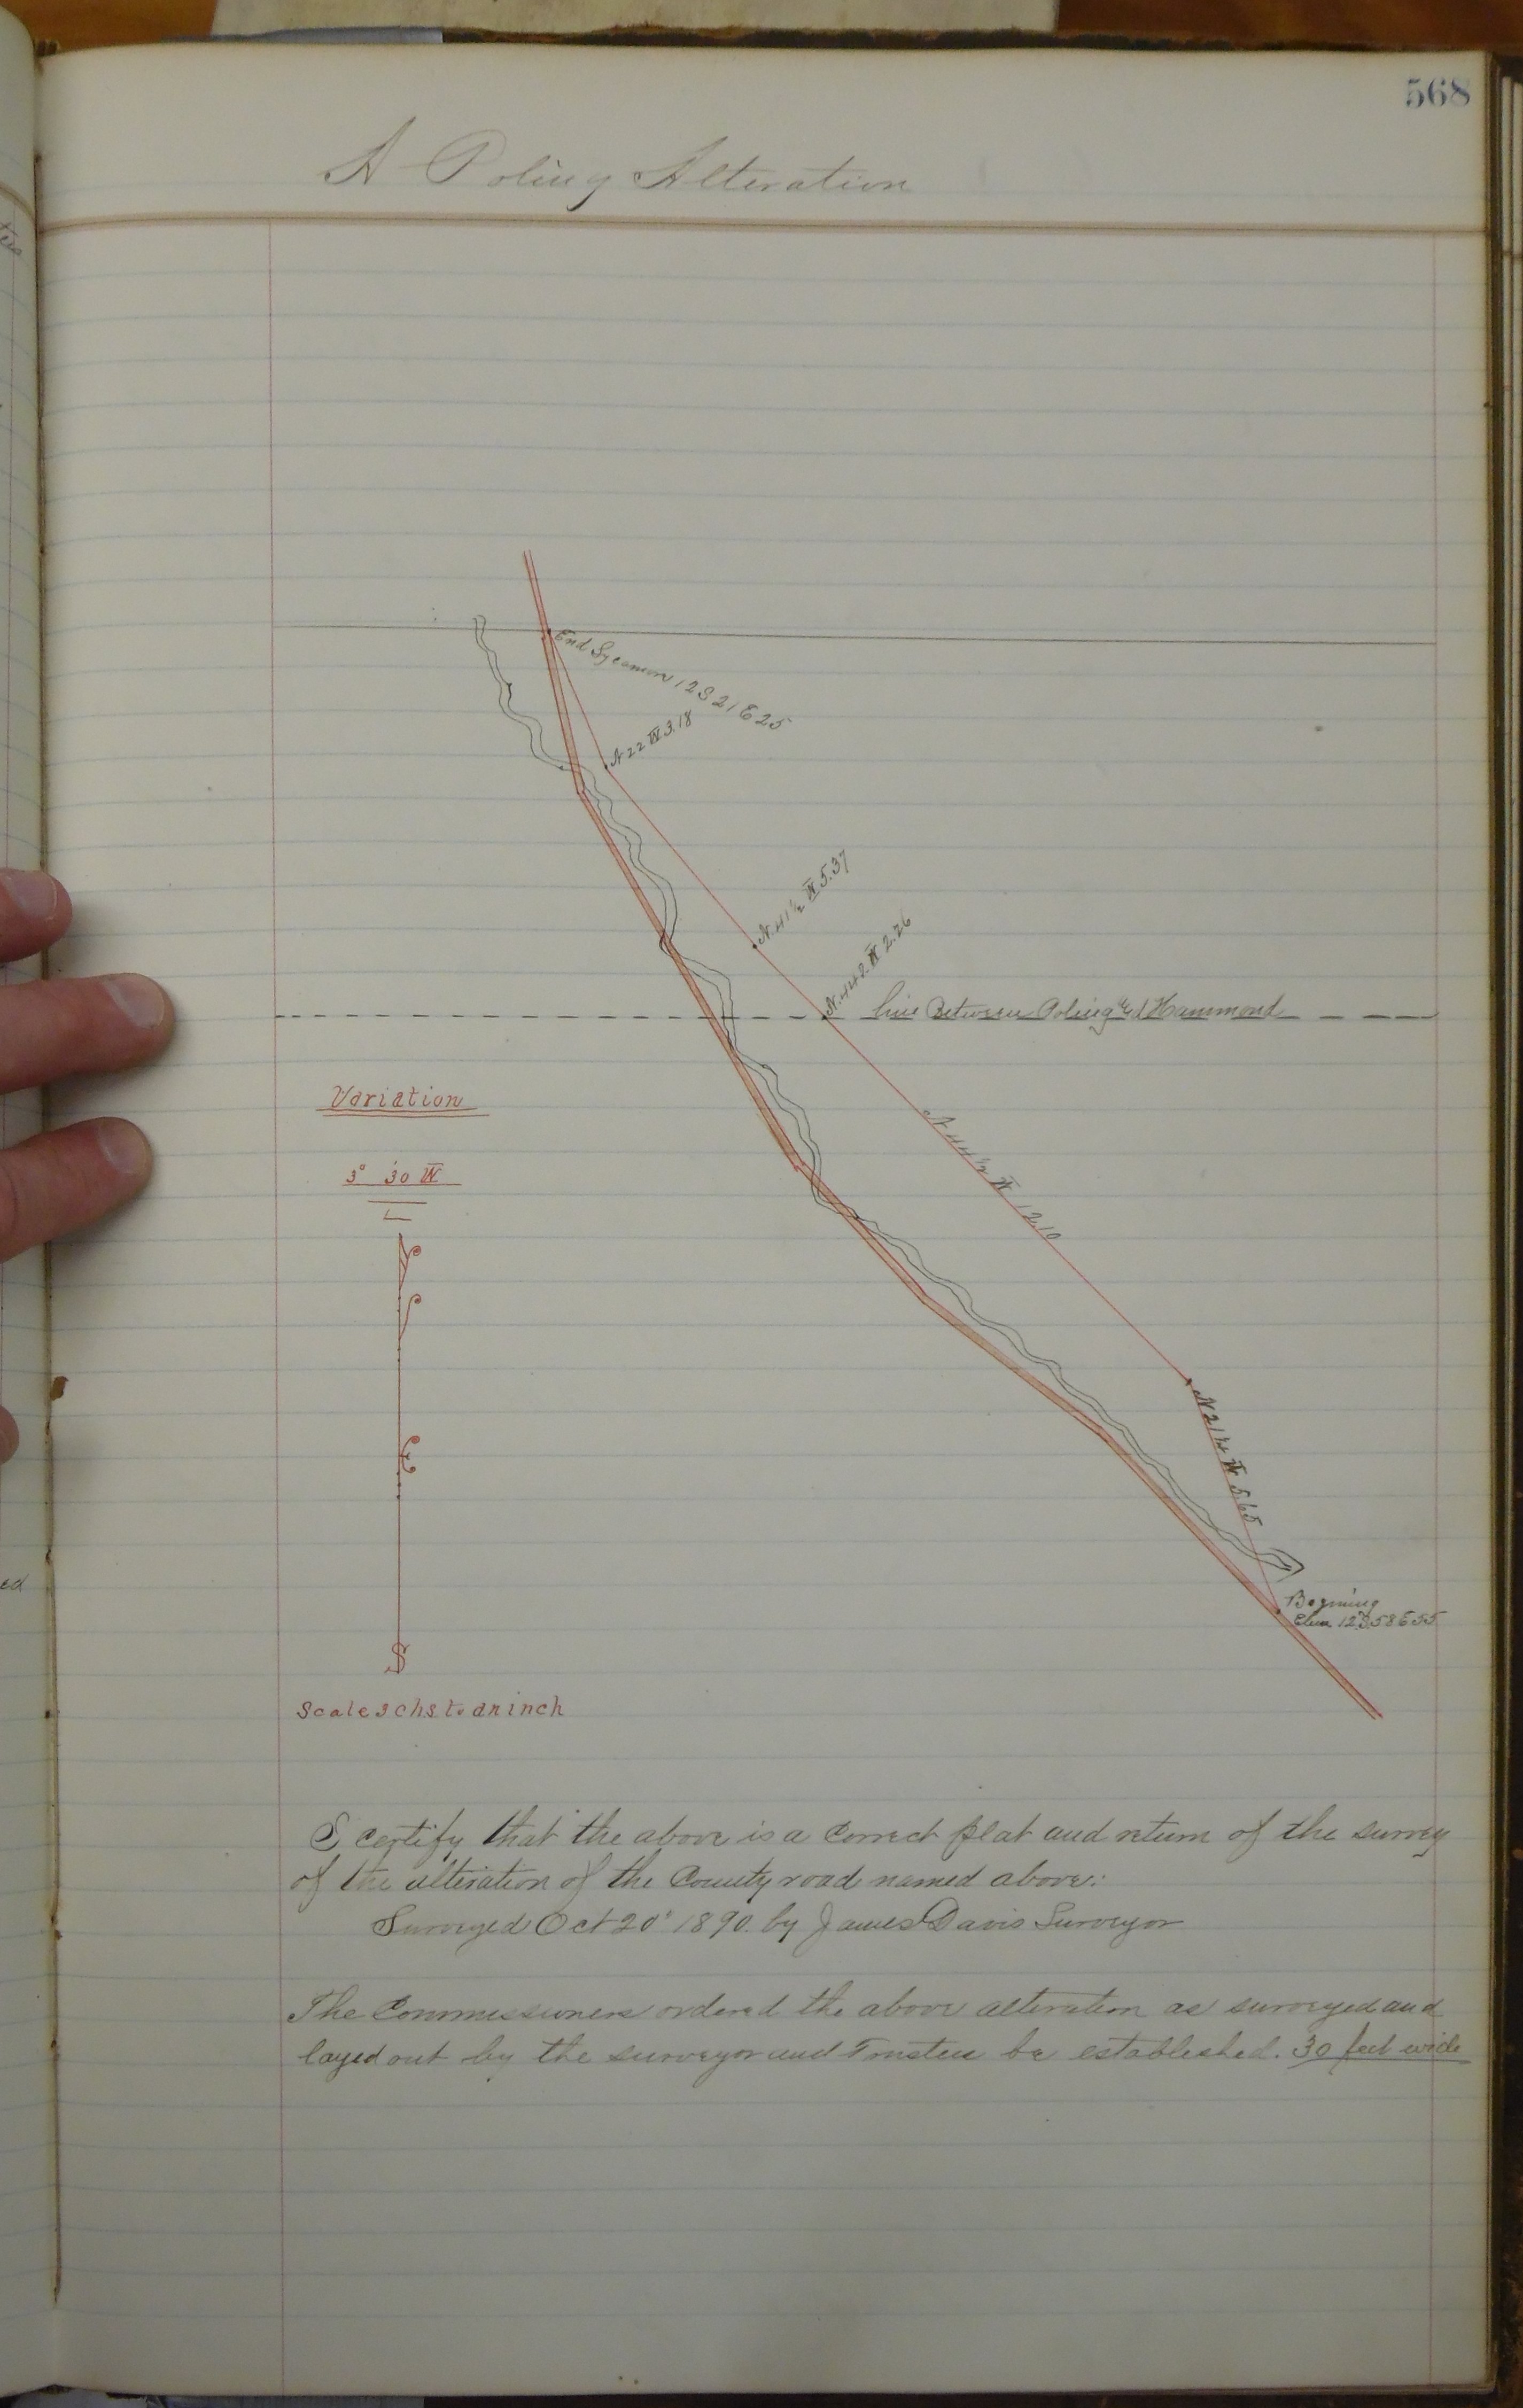 568
A Poling Alteration
End Sycamore 12 S 21 E 25
N 22 W 3.18
N. 41 1/2 W 5.37
W 2.26
Line Between Poling and Hammond
Variation
3° 30 W
N 44 1/2 W 12.10
N 21 1/2 W 5.65
Begning
Elm 12 S 58 E 55
S
Scale 3 chs to an inch
I certify that the above is a correct plat and return of the survey
of the alteration of the County road named above.
Surveyed Oct 20' 1890. by James Davis Surveyor
The Commissioners ordered the above alteration as surveyed and
layed out by the surveyor and Trustee be established. 30 feet wide
ed